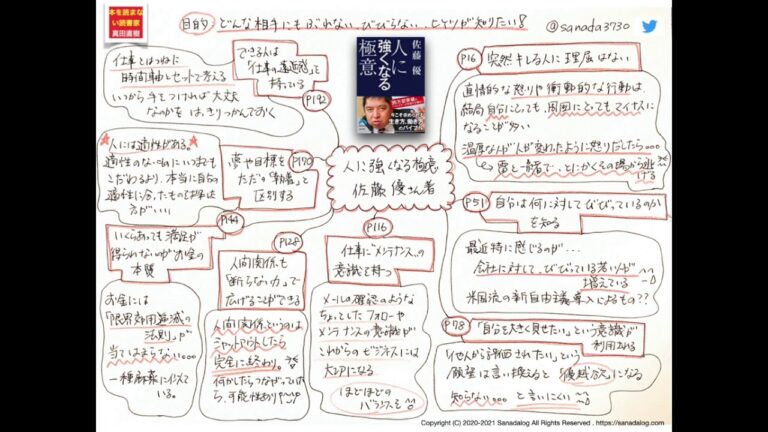 本を読まな
い読書家
真田直樹
目的: どんな相手にもぶれない、びびらない、ヒケツが知りたい!
@sanada3730
仕事とはつねに
時間軸とセットで考える
いつから手をつければ大丈夫
なのかをはっきりつかんでおく
できる人は
「仕事の遠近感」を
持っている
P192
佐藤優
人に
強くなる
極意
P16
突然キレる人に理屈はない
直情的な怒りや衝動的な行動は、
結局自分にとっても、周囲にとってもマイナスに
なることが多い
温厚な人が人が変わったように怒りだしたら。。。
雷と一緒で、とにかくその場から逃げる
人には適性がある。
適性のないものにいつまでも
こだわるより、本当に自分の
適性に合ったものを見出す
方がいい!
夢や目標を
ただの「執着」と
区別する
P170
人に強くなる極意
佐藤優さん著
P51
自分は何に対してびびっているのか
を知る
最近特に感じるのが...
会社に対して、びびっている若い人が
増えている
米国流の新自由主義導入によるもの??
P144
いくらあっても満足が
得られないのがお金の
本質
お金には
「限界効用逓減の
法則」が
当てはまらない。。。
一種麻薬に似えて
いる。
P128
人間関係も
「断らない力」で
広げることができる
人間関係というのは
シャットアウトしたら
完全に終わり。
何かしらつながっていたら、
可能性あり
P116
仕事に"メンテナンス"の
意識を持つ
メールの確認のような
ちょっとしたフォローや
メンテナンスの意識が
これからのビジネスには
大切になる
ほどほどの
バランスを
P78
「自分を大きく見せたい」という意識が
利用される
「他人から評価されたい」という
願望は言い換えると「優越願望」になる
知らない。。。と言いにくい
Copyright (C) 2020-2021 Sanadalog All Rights Reserved . https://sanadalog.com